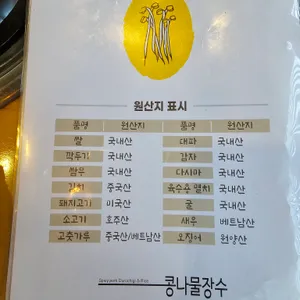 원산지 표시
품명 원산지 품명 원산지
쌀 국내산 대파 국내산
깍두기 국내산 감자 국내산
쌈무 국내산 다시마 국내산
중국산 육수용 멸치 국내산
돼지고기 미국산 굴 국내산
소고기 호주산 새우 베트남산
고춧가루 중국산/베트남산 오징어 원양산
콩나물장수